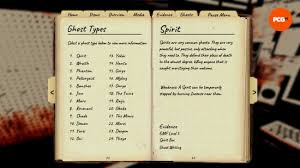 PCG
Home Items Overview Media
Evidence Ghosts Pause Menu
Ghost Types
Select a ghost type below to see more information
1. Spirit
2. Wraith
3. Phantom
4. Poltergeist
5. Banshee
6. Jinn
7. Mare
8. Revenant
9. Shade
10. Demon
11. Yurei
12. Oni
13. Yokai
14. Hantu
15. Goryo
16. Myling
17. Onryo
18. The Twins
19. Raiju
20. Obake
21. The Mimic
22. Moroi
23. Deogen
24. Thaye
Spirit
Spirits are very common ghosts. They are very
powerful, but passive, only attacking when
they need to. They defend their place of death
to the utmost degree, killing anyone that is
caught overstaying their welcome.
Weakness: A Spirit can be temporarily
stopped by burning Incense near them.
Evidence
EMF Level 5
Spirit Box
Ghost Writing